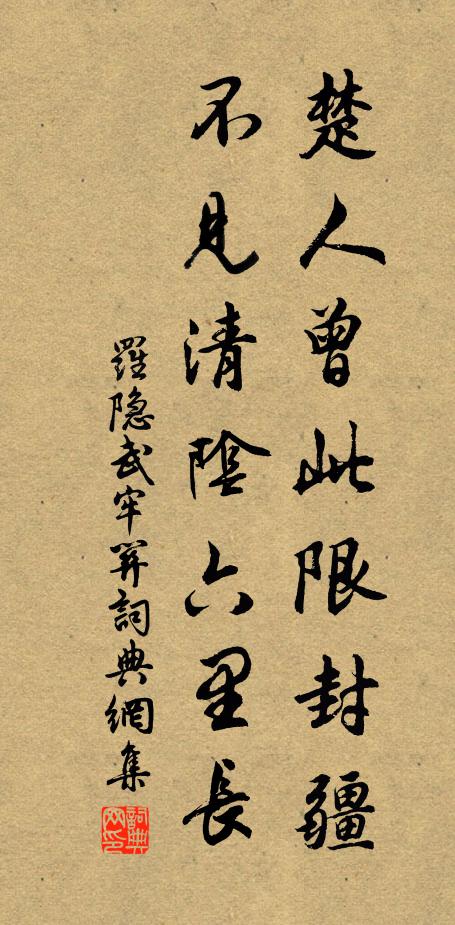 楚人曾此限封疆
不見清陰六里長
羅隐武牢關詞典網集
詞典網印